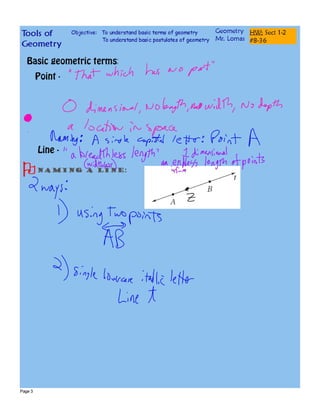 Tools of Geometry
Objective: To understand basic terms of geometry
To understand basic postulates of geometry
Geometry
Mr. Lomas
HW: Sect 1-2
#8-36
Basic geometric terms:
Point - "That which has no part"
0 dimensional, No length, no width, No depth
a location in space
Naming: A single capital letter: Point A
Line - "a breadthless length" 1 dimensional
(widthless) an endless length of points
NAMING A LINE:
2 ways:
t
B
Z
A
1) using two points
AB
2) single lowercase italic letter
Line t
Page 3